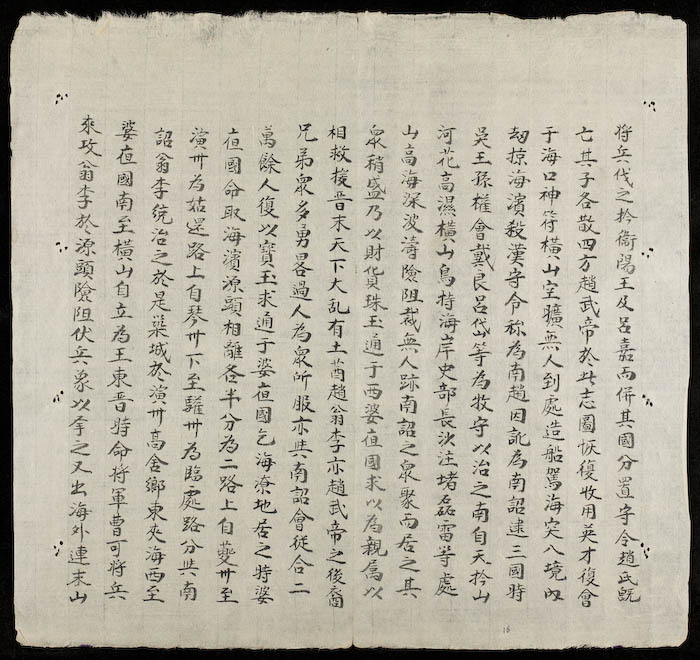 將兵伐之扵衛陽王及呂嘉而併其國分置守令趙氏既
亡其子各散四方趙武帝於此志圖恢復收用英才復會
于海口神符橫山空曠無人到處造船駕海突入境內
刼掠海濱殺漢守令称為南趙因訛為南詔逮三國時
吳王孫權會戴良呂岱等為牧守以治之南自天扵山
河花高濕橫山烏持海岸史部長沙注堵磊雷等處
山高海深波濤險阻裁無人跡南詔之衆聚而居之其
衆稍盛乃以財貨珠玉通于西婆直國求以為親属以
相救援晉末天下大乱有土酋趙翁李亦趙武帝之後裔
兄弟衆多勇畧過人為衆所服亦與南詔會徒合二
萬餘人復以寶玉求通于婆直國乞海潦地居之時婆
直國命取海濱源頭相離各半分為二路上自夔州至
演州為姑還路上自琴州下至驩州為臨處路分與南
詔翁李統治之於是築城於演州高舍鄉東夾海西至
婆直國南至橫山自立為王東晉時命將軍曹可將兵
來攻翁李於源頭險阻伏兵衆以拿之又出海外連末山
16